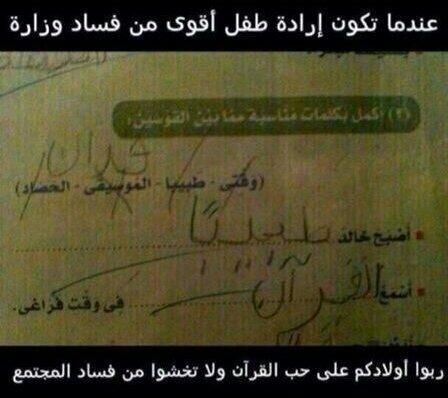 عندما تكون إرادة طفل أقوى من فساد وزارة
(٢) أكمل بكلمات مناسبة مما بين القوسين:
(وقتى - طبيبا - الموسيقى - الحصاد)
أصبح خالد طبيبًا
أسمع القرآن فى وقت فراغى.
ربوا أولادكم على حب القرآن ولا تخشوا من فساد المجتمع